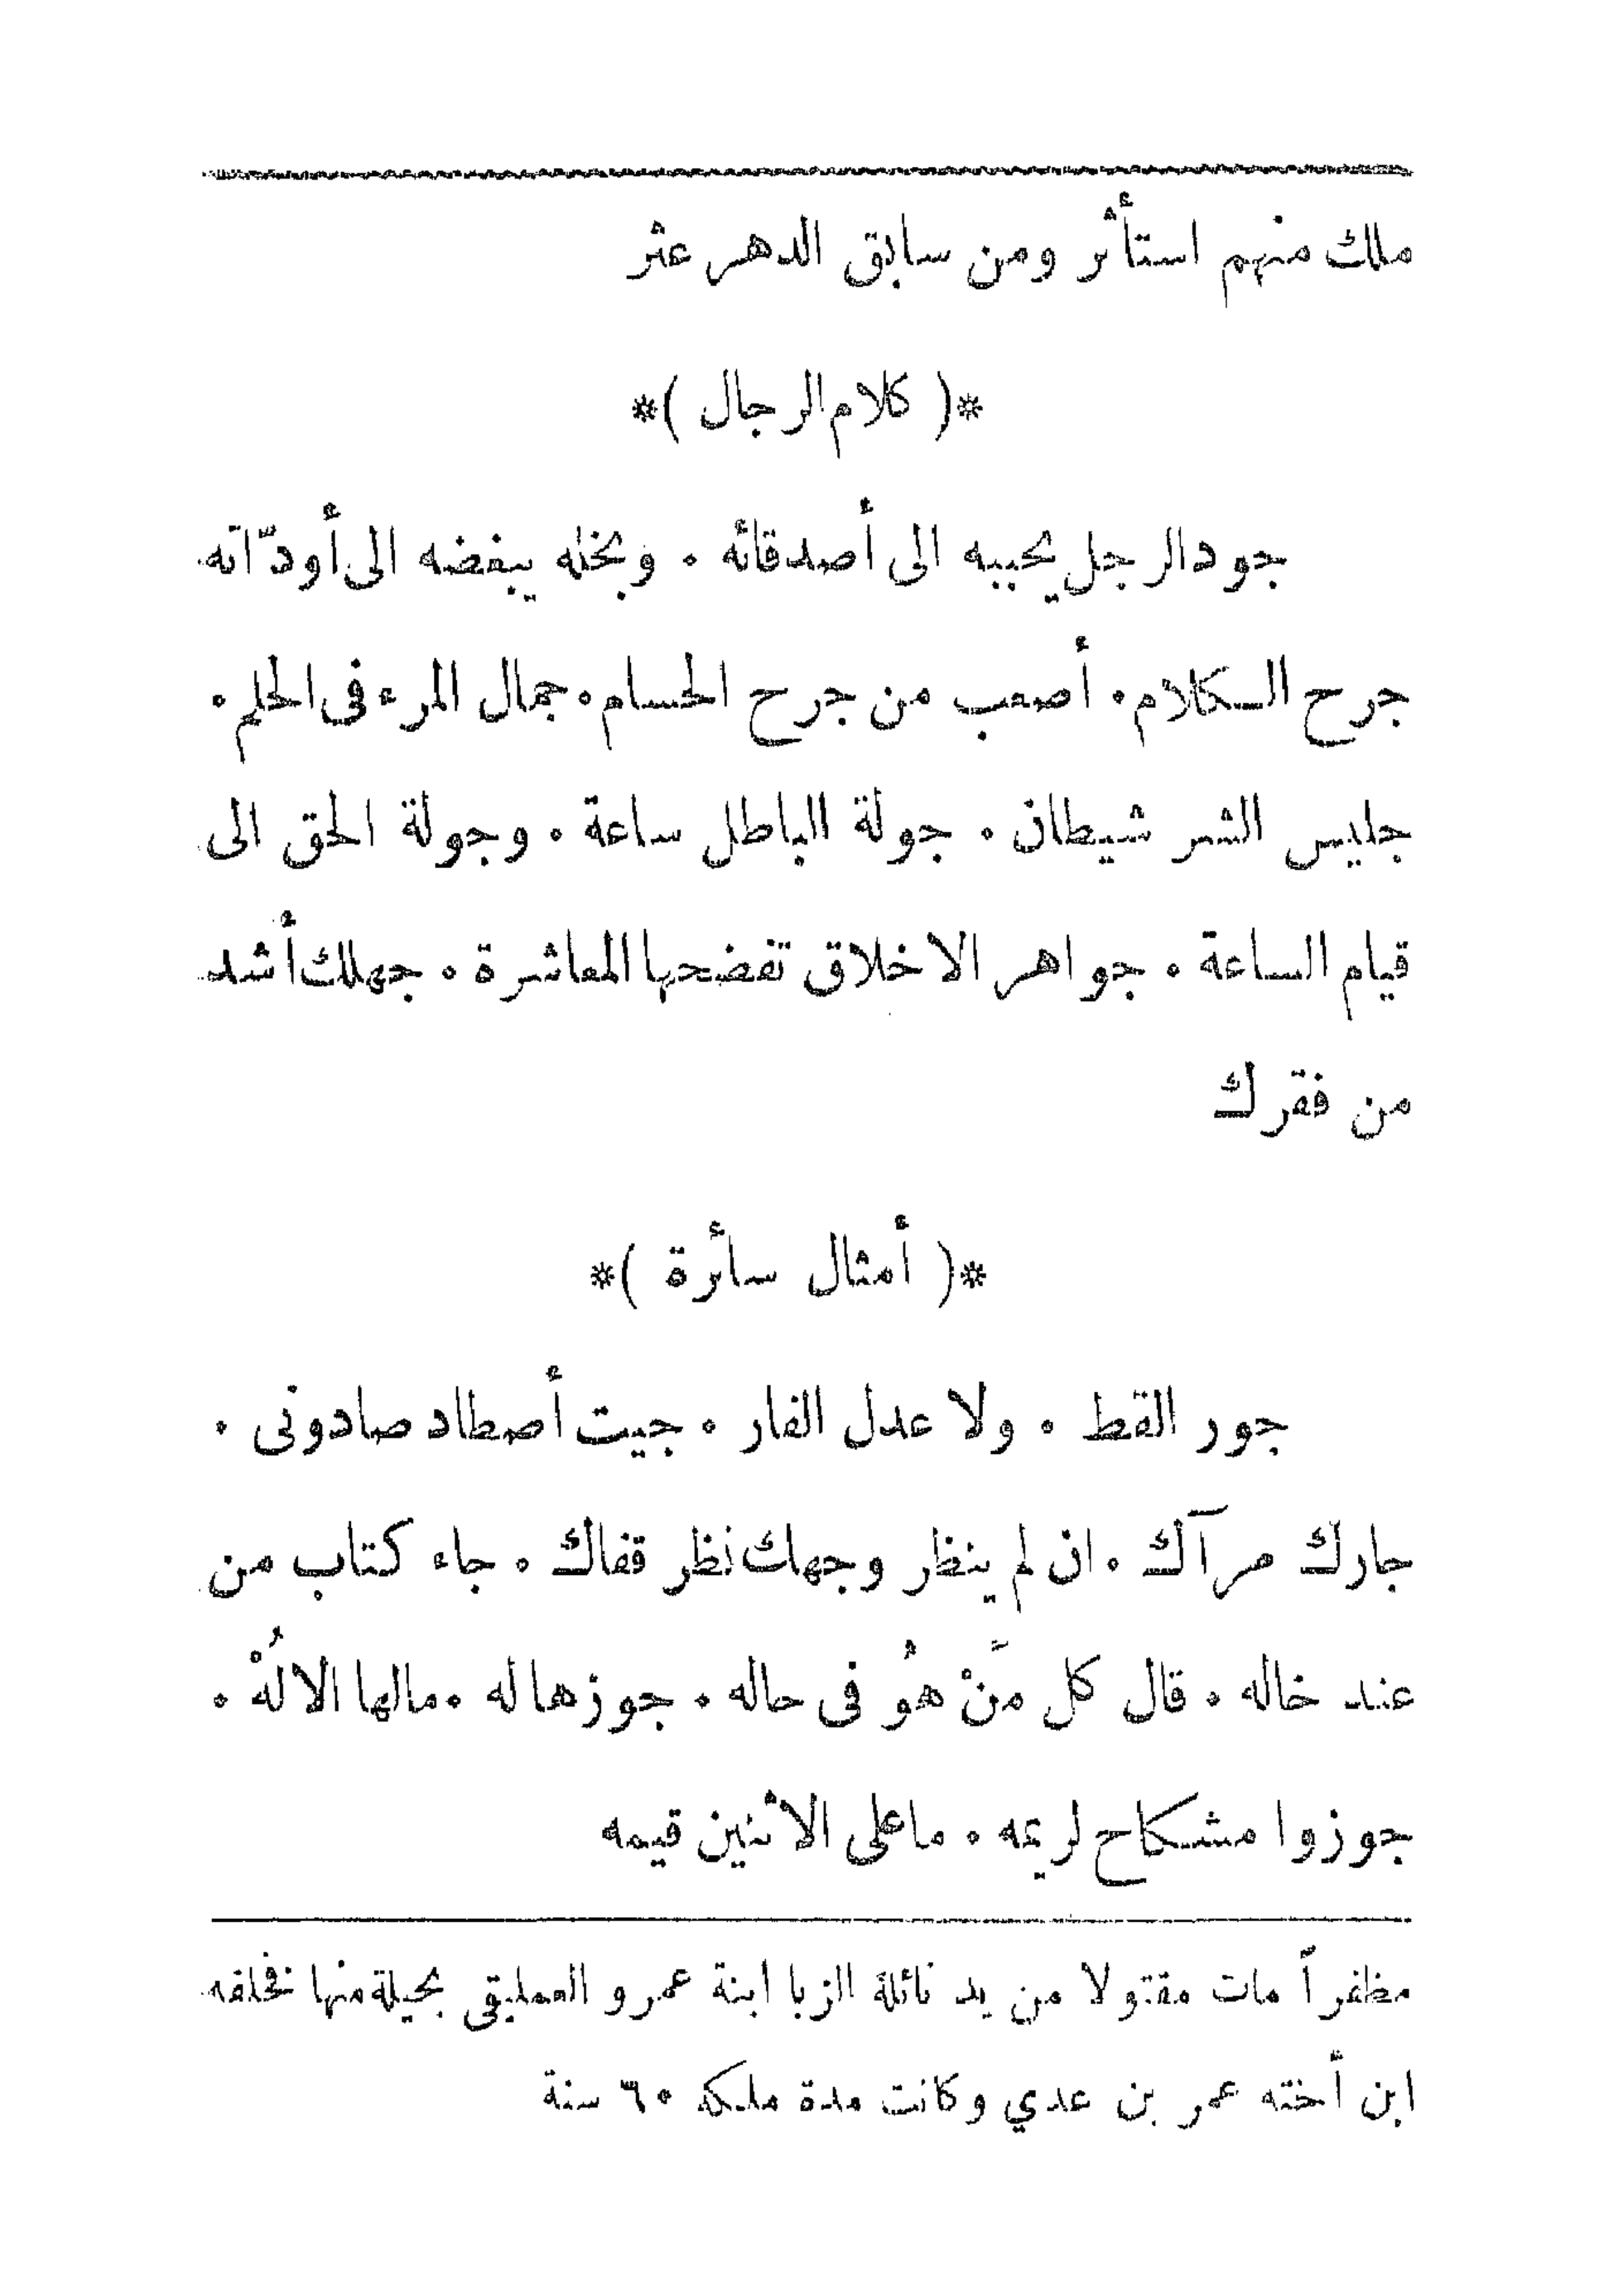 ملك منهم استأثر ومن سابق الدهر عثر
*( كلام الرجال )*
جود الرجل يحببه الى أصدقائه . وبخله يبغضه الى أودّائه
جرح الكلام . أصعب من جرح الحسام . جمال المرء فى الحلم .
جليس الشر شيطان . جولة الباطل ساعة . وجولة الحق الى
قيام الساعة . جواهر الاخلاق تفضحها المعاشرة . جهلك أشد
من فقرك
*( أمثال سائرة )*
جور القط . ولا عدل الفار . جيت أصطاد صادونى .
جارك مرآك . ان لم ينظر وجهك نظر قفاك . جاء كتاب من
عند خاله . قال كل مَنْ هُو فى حاله . جوزها له . مالها الا لُهْ .
جوزوا مشكاح لريمه . ماعلى الاثنين قيمه
مظفراً مات مقتولا من يد نائلة الزبا ابنة عمرو العمليقى بحيلة منها نخلفه
ابن أخته عمر بن عدي وكانت مدة ملكه ٦٠ سنة